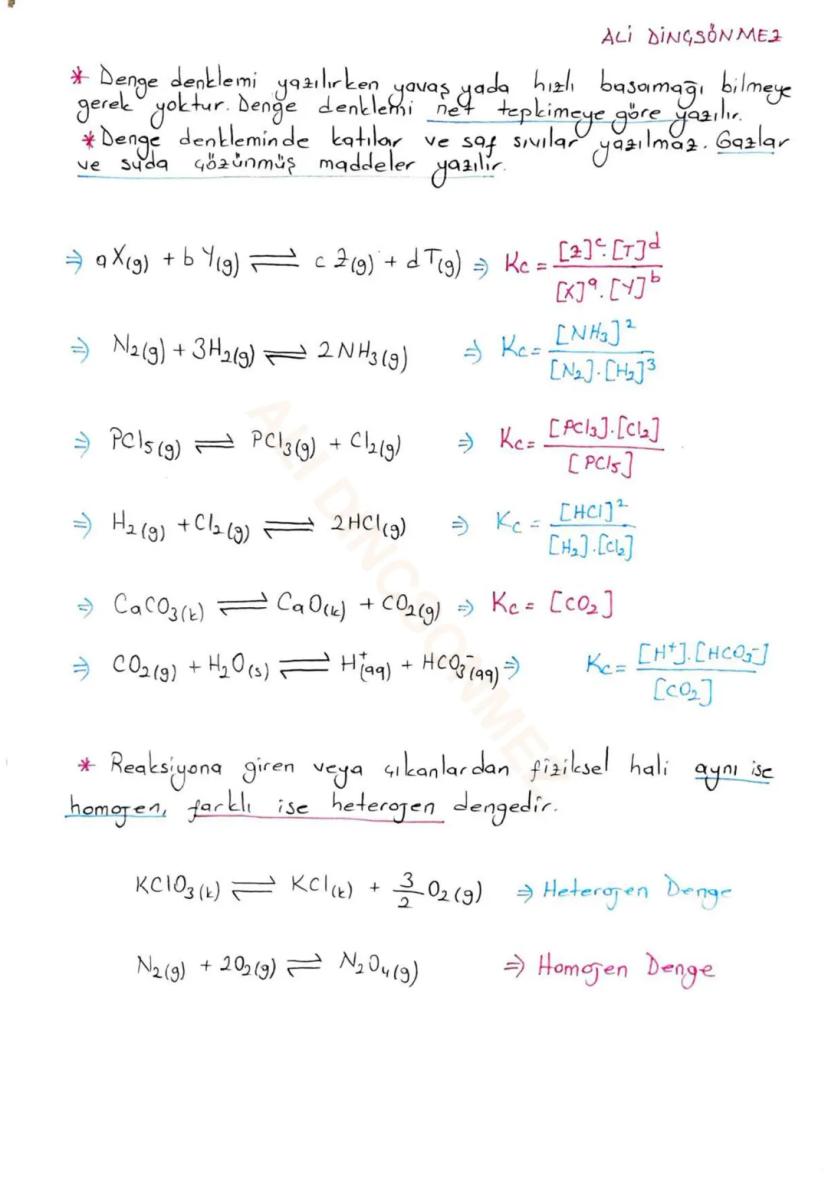 ALİ DİNÇSÖNMEZ
* Denge denklemi yazılırken yavaş yada hızlı basamağı bilmeye
gerek yoktur. Denge denklemi net tepkimeye göre yazılır.
* Denge denkleminde katılar ve saf sıvılar yazılmaz. Gazlar
ve suda çözünmüş maddeler yazılır.
⇒ aX(g) + bY(g) ⇌ cZ(g) + dT(g) ⇒ Kc = [Z]^c.[T]^d / [X]^a.[Y]^b
⇒ N₂(g) + 3H₂(g) ⇌ 2NH₃(g) ⇒ Kc = [NH₃]² / [N₂].[H₂]³
⇒ PCl₅(g) ⇌ PCl₃(g) + Cl₂(g) ⇒ Kc = [PCl₃].[Cl₂] / [PCl₅]
⇒ H₂(g) + Cl₂(g) ⇌ 2HCl(g) ⇒ Kc = [HCl]² / [H₂].[Cl₂]
⇒ CaCO₃(k) ⇌ CaO(k) + CO₂(g) ⇒ Kc = [CO₂]
⇒ CO₂(g) + H₂O(s) ⇌ H⁺(aq) + HCO₃⁻(aq) ⇒ Kc = [H⁺].[HCO₃⁻] / [CO₂]
* Reaksiyona giren veya çıkanlardan fiziksel hali aynı ise
homojen, farklı ise heterojen dengedir.
KClO₃(k) ⇌ KCl(k) + 3/2 O₂(g) ⇒ Heterojen Denge
N₂(g) + 2O₂(g) ⇌ N₂O₄(g) ⇒ Homojen Denge
ALI DINCSONMEZ